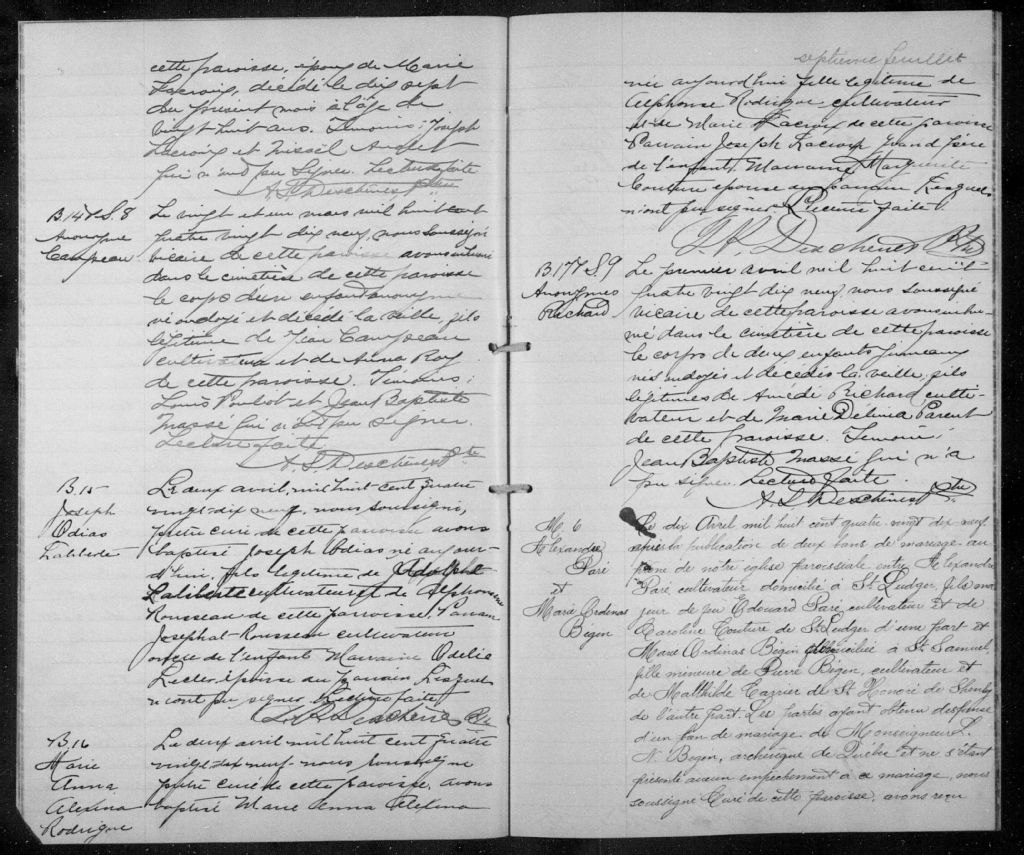 cette paroisse, époux de Marie
Lacroix, décédé le dix sept
du présent mois à l'âge de
vingt huit ans. Temoins: Joseph
Lacroix et
qui n'ont pu signer. Lecture faite
Deschènes ptre
B 14 & S. 8
Anonyme
Campeau
Le vingt et un mars mil huit cent
quatre vingt dix neuf, nous soussigné
vicaire de cette paroisse avons inhumé
dans le cimetière de cette paroisse
le corps d'un enfant anonyme
né ondoyé et décédé la veille, fils
légitime de Jean Campeau
cultivateur et de Anna Roy
de cette paroisse. Témoins:
Louis et Jean Baptiste
Massé qui n'ont pu signer.
Lecture faite
Deschènes Ptre
B. 15
Joseph
Odias
Laliberté
Le deux avril, mil huit cent quatre
vingt dix neuf, nous soussigné,
prêtre curé de cette paroisse avons
baptisé Joseph Odias né aujour-
d'hui, fils légitime de Adolphe
Laliberté cultivateur et de Alphonsine
Rousseau de cette paroisse. Parrain
Josephat Rousseau cultivateur
oncle de l'enfant Marraine Odélie
Leclerc épouse du parrain Lesquels
n'ont pu signer. Lecture faite
Deschènes Ptre
B. 16
Marie
Anna
Alexina
Rodrigue
Le deux avril mil huit cent quatre
vingt dix neuf nous soussigné
prêtre curé de cette paroisse, avons
baptisé Marie Anna
septième feuillet
née aujourd'hui fille légitime de
Alphonse Rodrigue cultivateur
et de Marie Lacroix de cette paroisse
Parrain Joseph Lacroix grand père
de l'enfant, Marraine Marguerite
Couture épouse du parrain Lesquels
n'ont pu signer. Lecture faite
Deschènes Ptre
B 17 & S 9
Anonymes
Richard
Le premier avril mil huit cent
quatre vingt dix neuf, nous soussigné
vicaire de cette paroisse avons inhu-
mé dans le cimetière de cette paroisse
le corps de deux enfants jumeaux
nés ondoyés et décédés la veille, fils
légitimes de Amédé Richard culti-
vateur et de Marie Delina Parent
de cette paroisse. Temoin:
Jean Baptiste Massé qui n'a
pu signer. Lecture faite.
Deschènes Ptre
M. 6
Alexandre
Paré
et
Marie Ordinas
Bégin
Le dix Avril mil huit cent quatre-vingt dix neuf,
après la publication de deux bans de mariage au
prône de notre église paroissiale entre Alexandre
Paré cultivateur domicilié à St Ludger, fils ma
jeur de feu Edouard Paré, cultivateur et de
Caroline Couture de St Ludger d'une part et
Marie Ordinas Bégin domiciliée à St Samuel,
fille mineure de Pierre Bégin, cultivateur et
de Malthilde Carrier de St Honoré de Shenley
de l'autre part. Les parties ayant obtenu dispense
d'un ban de mariage de Monseigneur L.
N. Bégin, archevêque de Québec et ne s'étant
présenté aucun empêchement à ce mariage, nous
soussigné Curé de cette paroisse, avons reçu